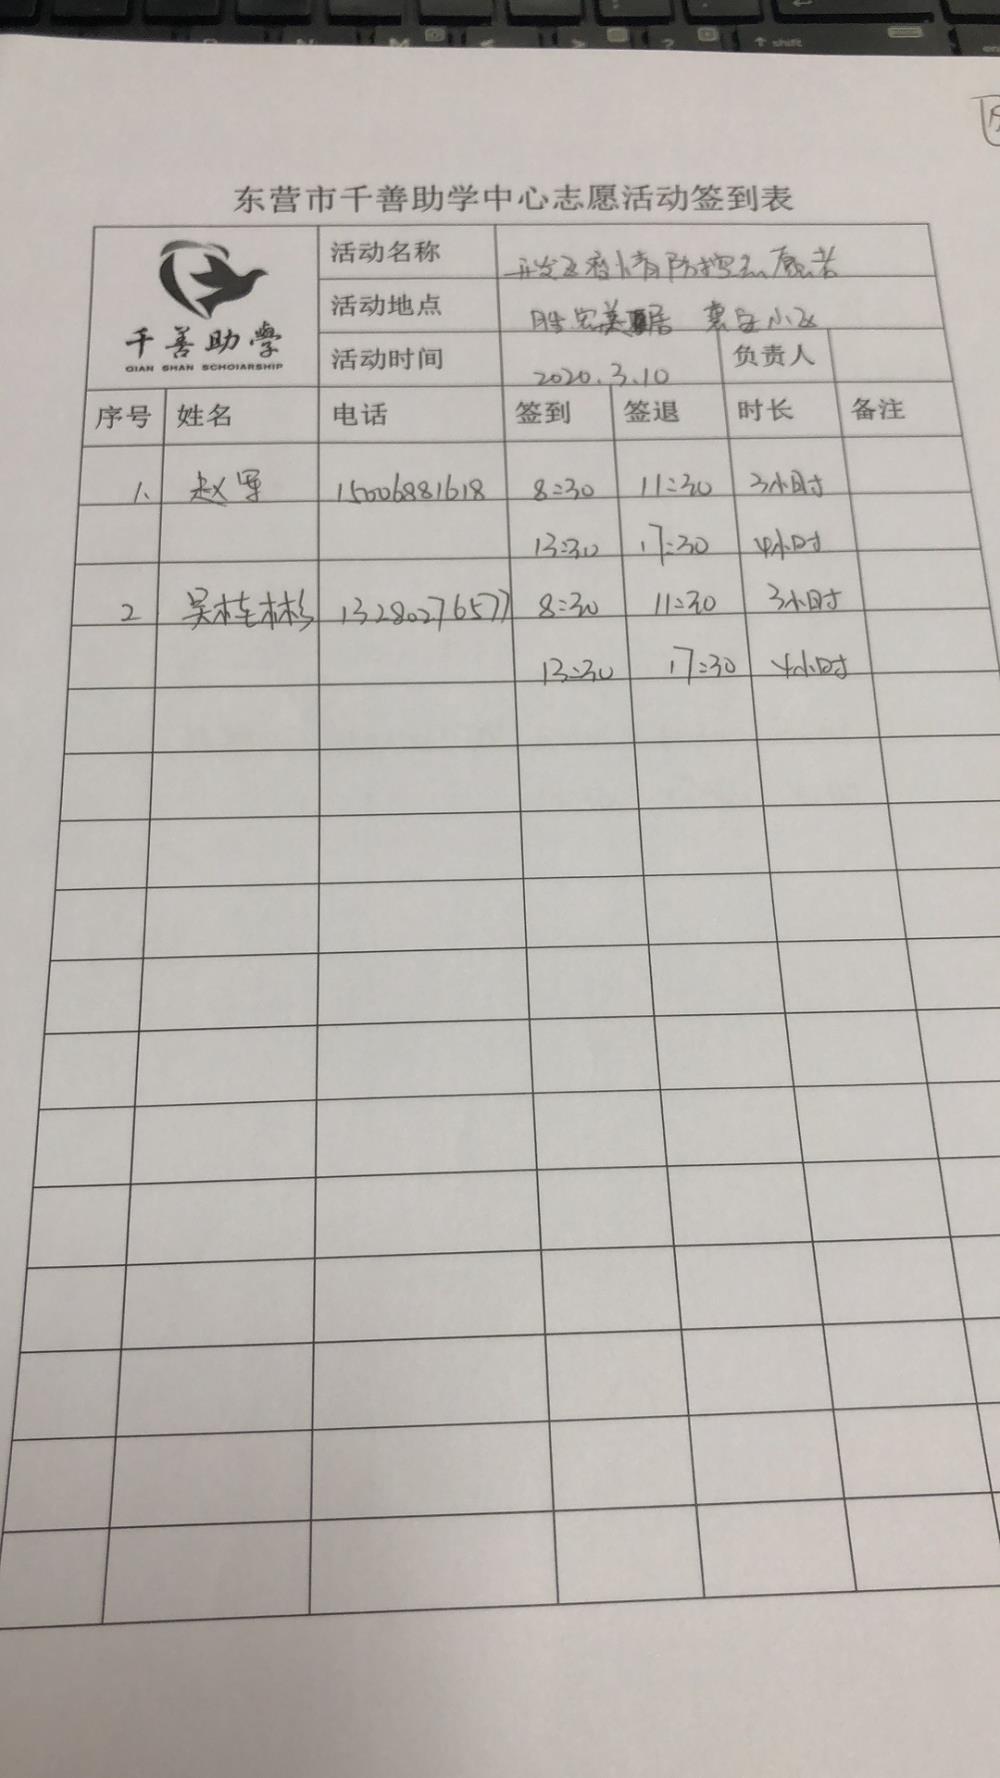 shift
东营市千善助学中心志愿活动签到表
千善助學
QIAN SHAN SCHOIARSHIP
活动名称 开发区疫情防控志愿者
活动地点 胜宏美居 惠安小区
活动时间 2020.3.10 负责人
序号 姓名 电话 签到 签退 时长 备注
1. 赵军 15006881618 8:30 11:30 3小时
13:30 17:30 4小时
2 吴桂彬 13280276577 8:30 11:30 3小时
13:30 17:30 4小时